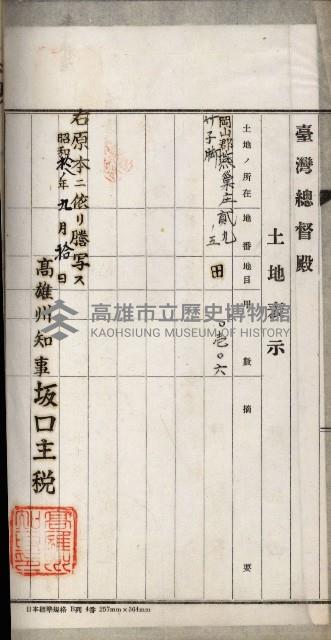 臺灣總督殿
土地表示
土地ノ所在 地番 地目 甲數 摘要
岡山郡燕巢庄 貳九ノ五 田 〇壱〇六
竹子脚
右原本ニ依リ謄写ス
昭和拾八年九月拾日
高雄州知事坂口主税
高雄市立歷史博物館
KAOHSIUNG MUSEUM OF HISTORY
日本標準規格 B列 4番 257mm×364mm